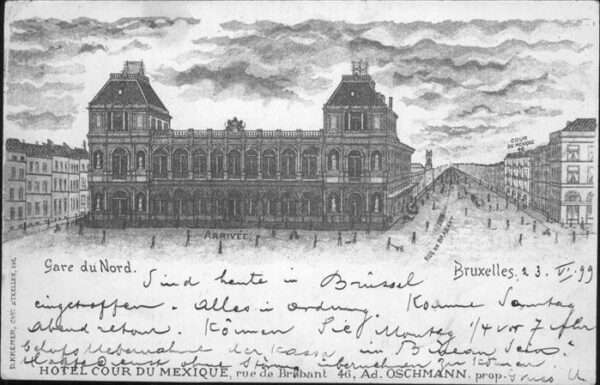 COUR
DU MEXIQUE
46
ARRIVÉE
RUE DE BRABANT
Gare du Nord. Bruxelles, 23. VI. 99
Sind heute in Brüssel
eingetroffen. Alles in Ordnung. Komme Sonntag
abend retour. Können Sie Montag 1/4 vor 7 Uhr
der Kassa in
ohne übernehmen
HOTEL COUR DU MEXIQUE, rue de Brabant 46, Ad. OSCHMANN. prop.